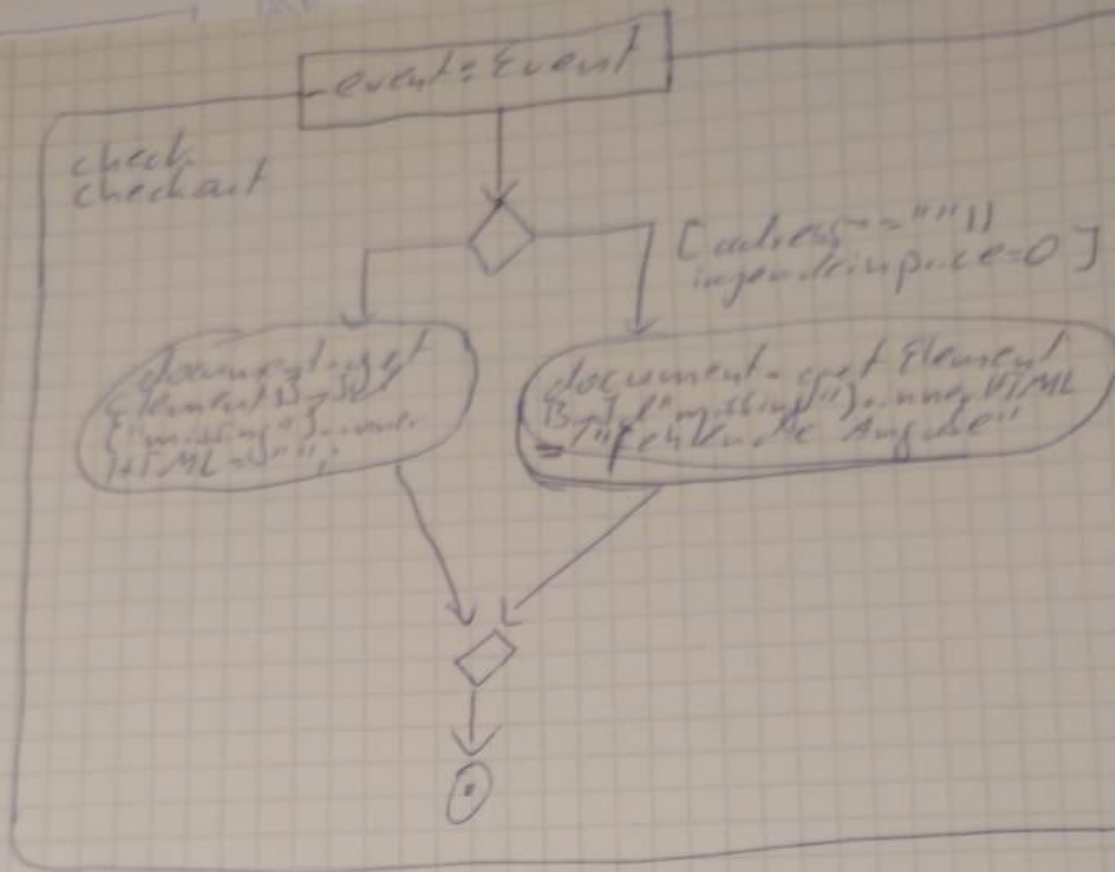 event: Event
check
checkout
[adress == "" ||
price=0]
document.get
ElementById
("missing").inner
HTML = "";
document.getElement
ById("missing").innerHTML
= "fehlende Angabe"